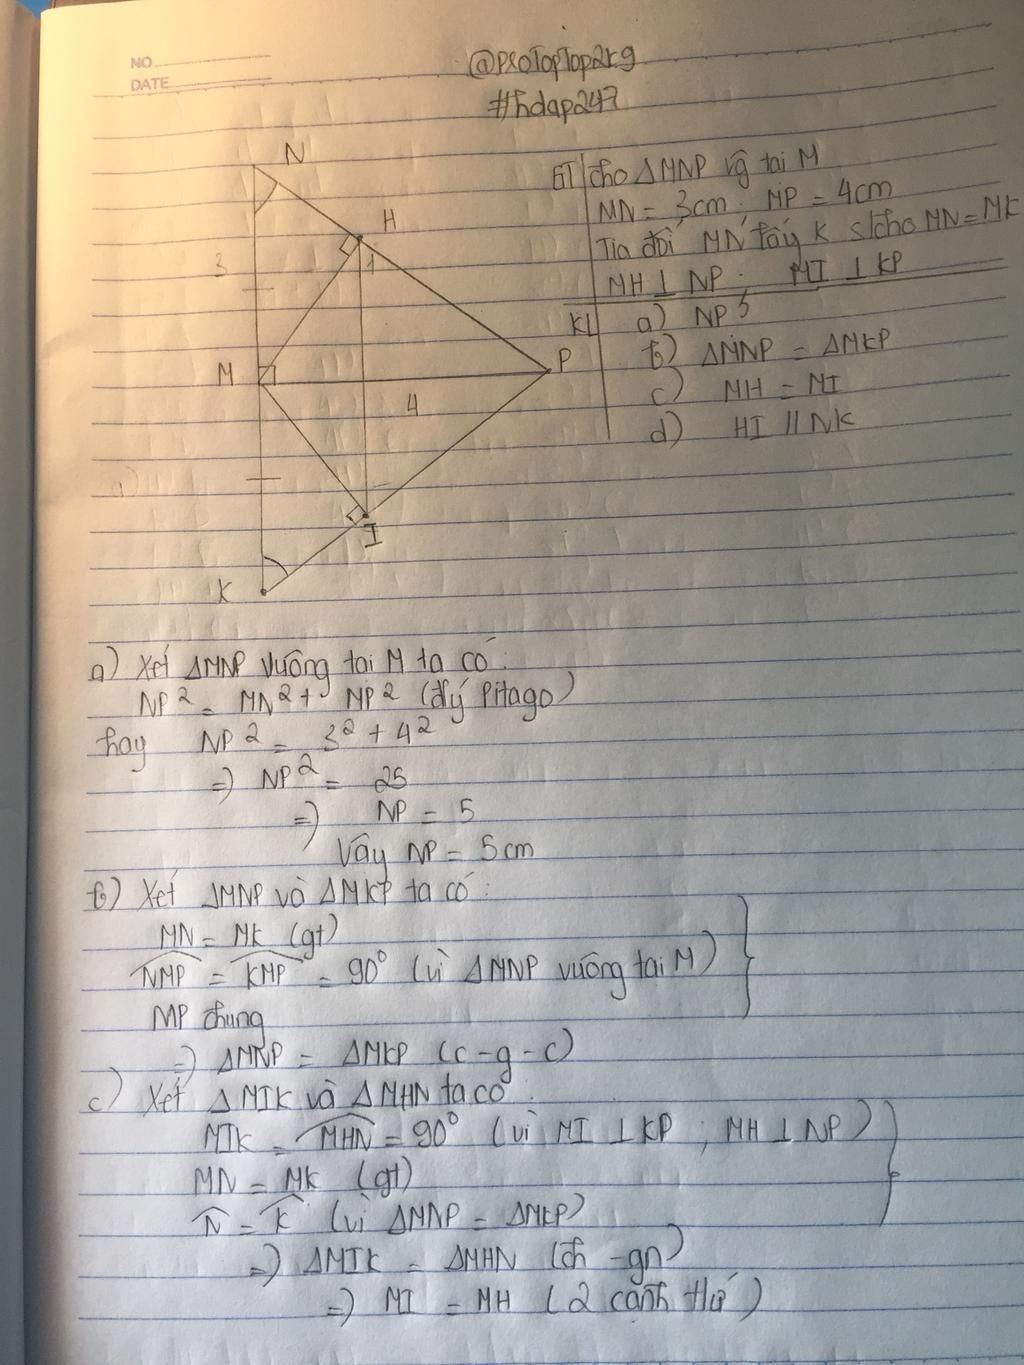 NO
DATE
@proTopTop2k9
#hdap247
GT cho ΔMNP vg tại M
MN = 3cm; MP = 4cm
Tia đối MN lấy K s/cho MN = MK
MH ⊥ NP; MI ⊥ KP
KL a) NP?
b) ΔMNP = ΔMKP
c) MH = MI
d) HI // NK
N
H
1
3
M
P
4
I
K
a) Xét ΔMNP vuông tại M ta có:
NP² = MN² + MP² (đlý Pitago)
hay NP² = 3² + 4²
=> NP² = 25
=> NP = 5
Vậy NP = 5cm
b) Xét ΔMNP và ΔMKP ta có:
MN = MK (gt)
NMP = KMP = 90° (vì ΔMNP vuông tại M)
MP chung
=> ΔMNP = ΔMKP (c-g-c)
c) Xét ΔMIK và ΔMHN ta có:
MIK = MHN = 90° (vì MI ⊥ KP; MH ⊥ NP)
MN = MK (gt)
N = K (vì ΔMNP = ΔMKP)
=> ΔMIK = ΔMHN (ch-gn)
=> MI = MH (2 cạnh tứ)